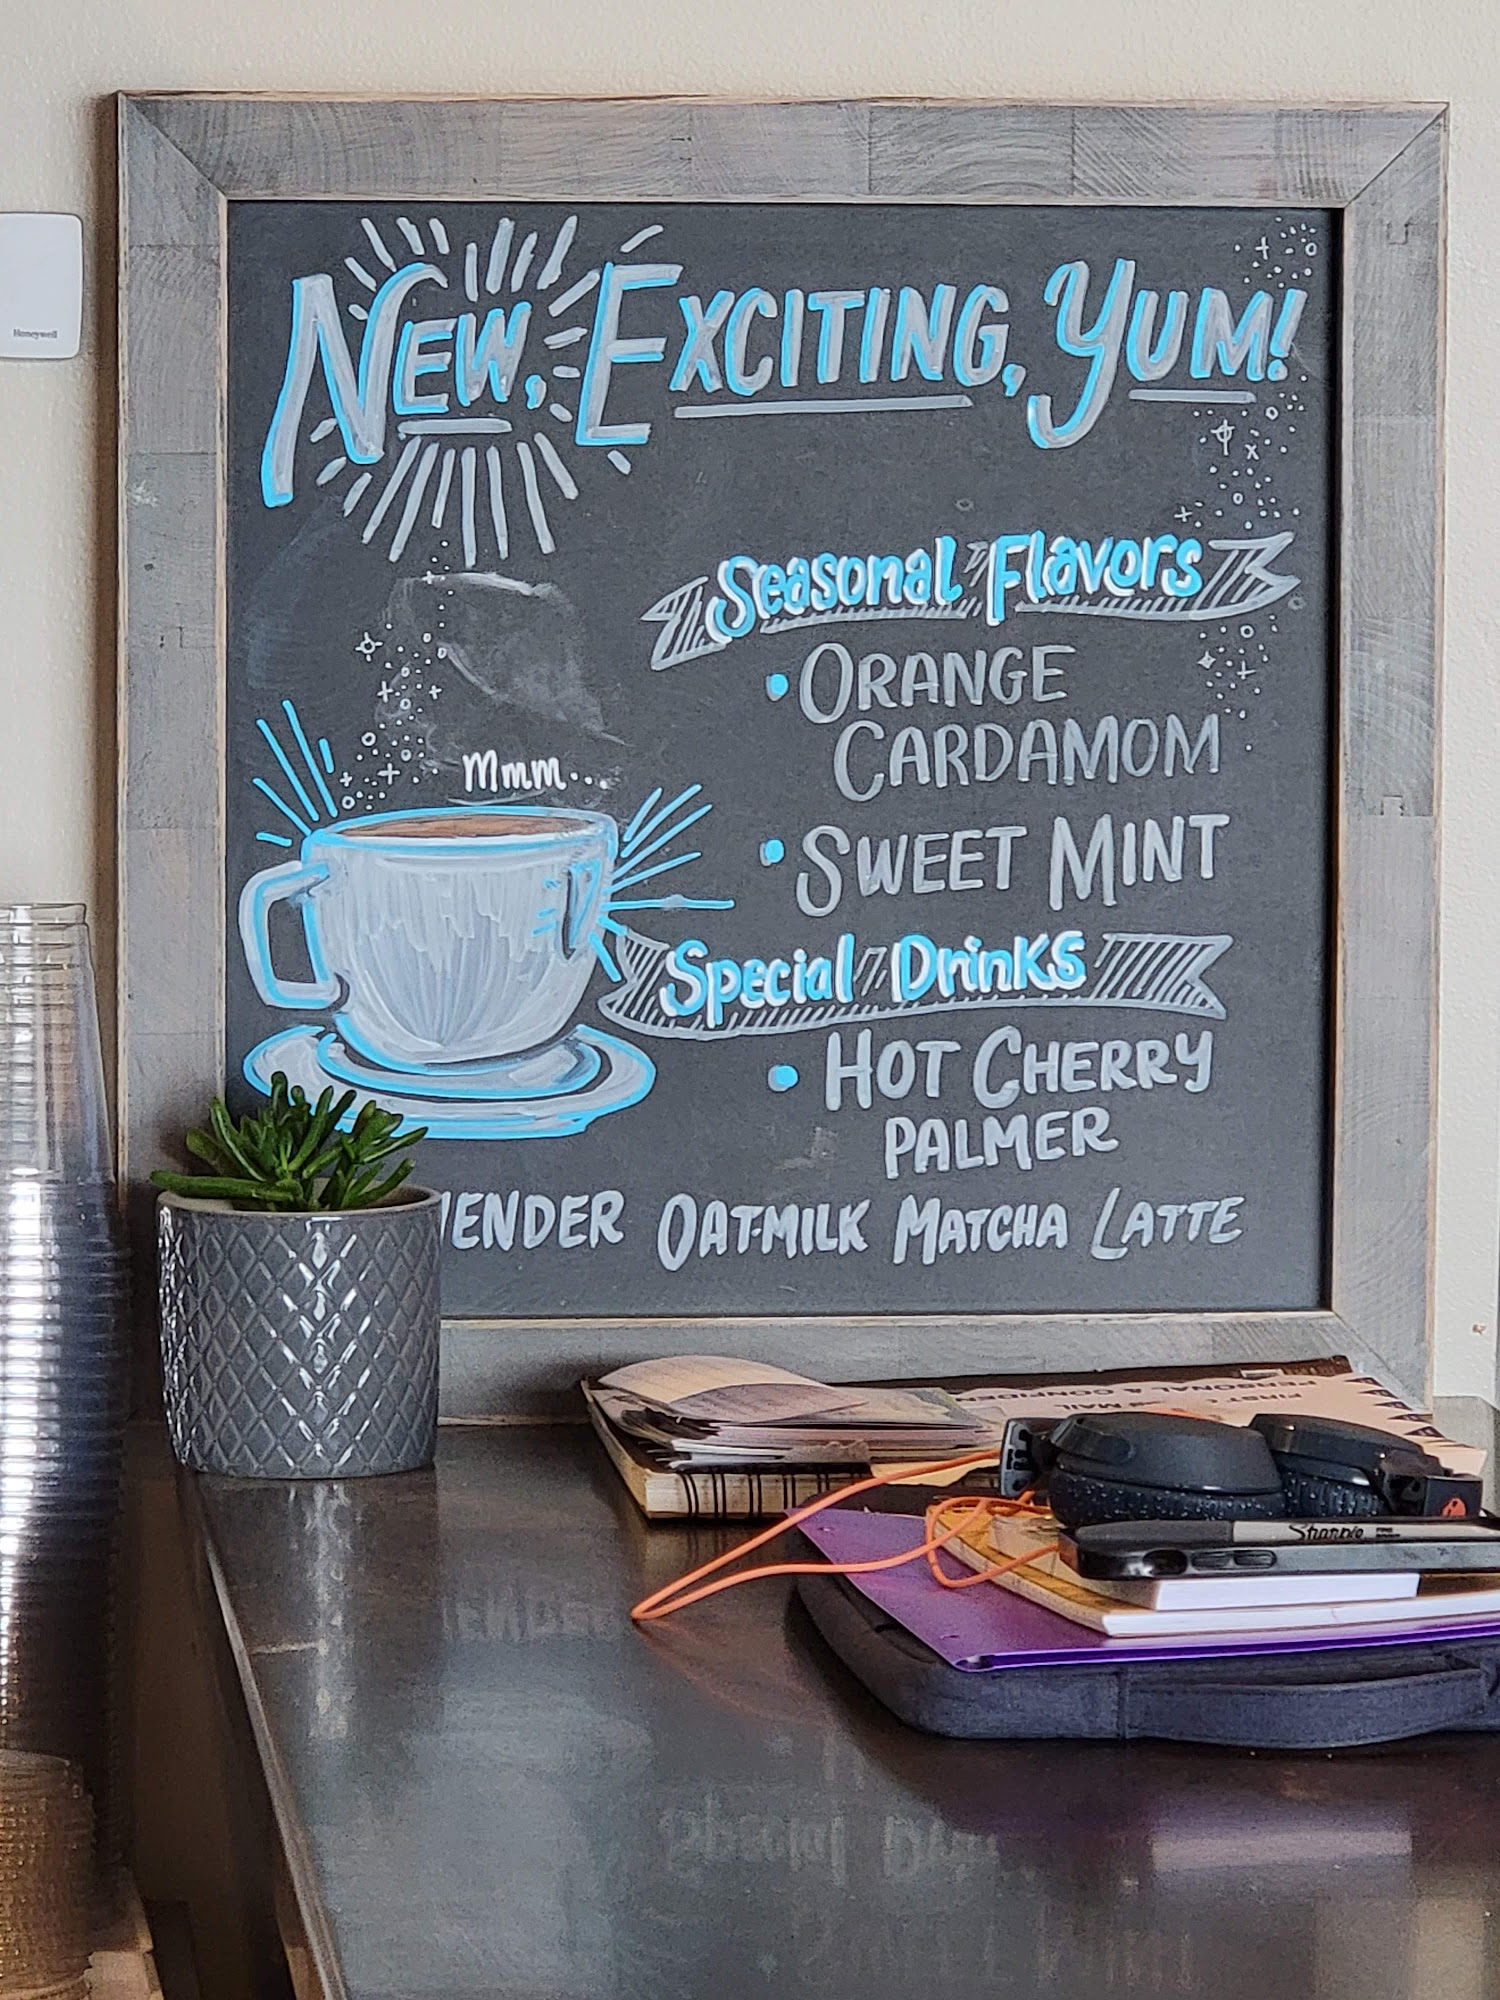 Honeywell
NEW, EXCITING, YUM!
Seasonal Flavors
• ORANGE
CARDAMOM
• SWEET MINT
Mmm...
Special Drinks
• HOT CHERRY
PALMER
VENDER OATMILK MATCHA LATTE
PERSONAL & CONFIDEN
FIRST C MAIL
Sharpie